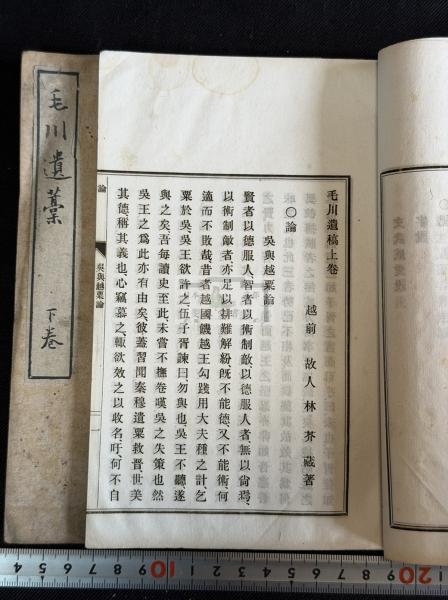 毛川遺藁
下卷
毛川遺稿上卷
越前 故人林芥藏著
〇論
吳與越粟論
賢者以德服人、智者以術制敵、以德服人者、無以尙焉、
以術制敵者、亦足以排難解紛、旣不能德、又不能術、何
適而不敗哉、昔者越國饑、越王勾踐用大夫種之計、乞
粟於吳、吳王欲許之、伍子胥諫曰、勿與也、吳王不聽、遂
與之矣、吾每讀史至此、未嘗不撫卷嘆吳之失策也、然
吳王之爲此亦有由矣、彼蓋習聞秦穆遺粟救晉、世美
其德、稱其義也、心竊慕之、輒欲效之以收名、吁、何不自
論
吳與越粟論